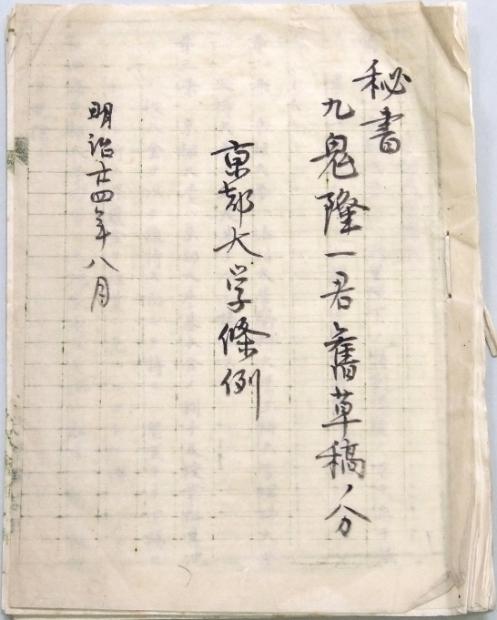 秘書
九鬼隆一君舊草稿ノ分
京都大学條例
明治廿四年八月